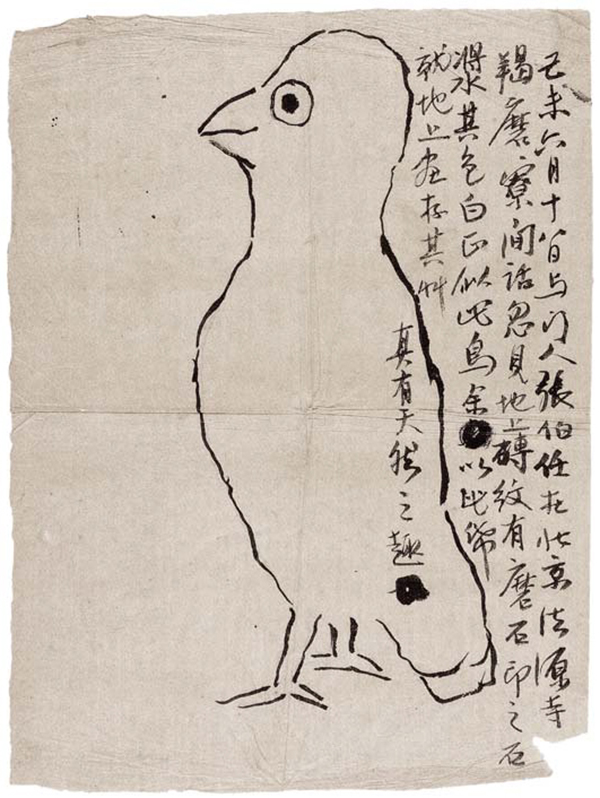 己未六月十八日与门人張伯任在北京法源寺
羯磨寮间話忽見地上磚紋有磨石印之石
漿水其色白正似此鳥余以此帋
就地上画存其艸
真有天然之趣